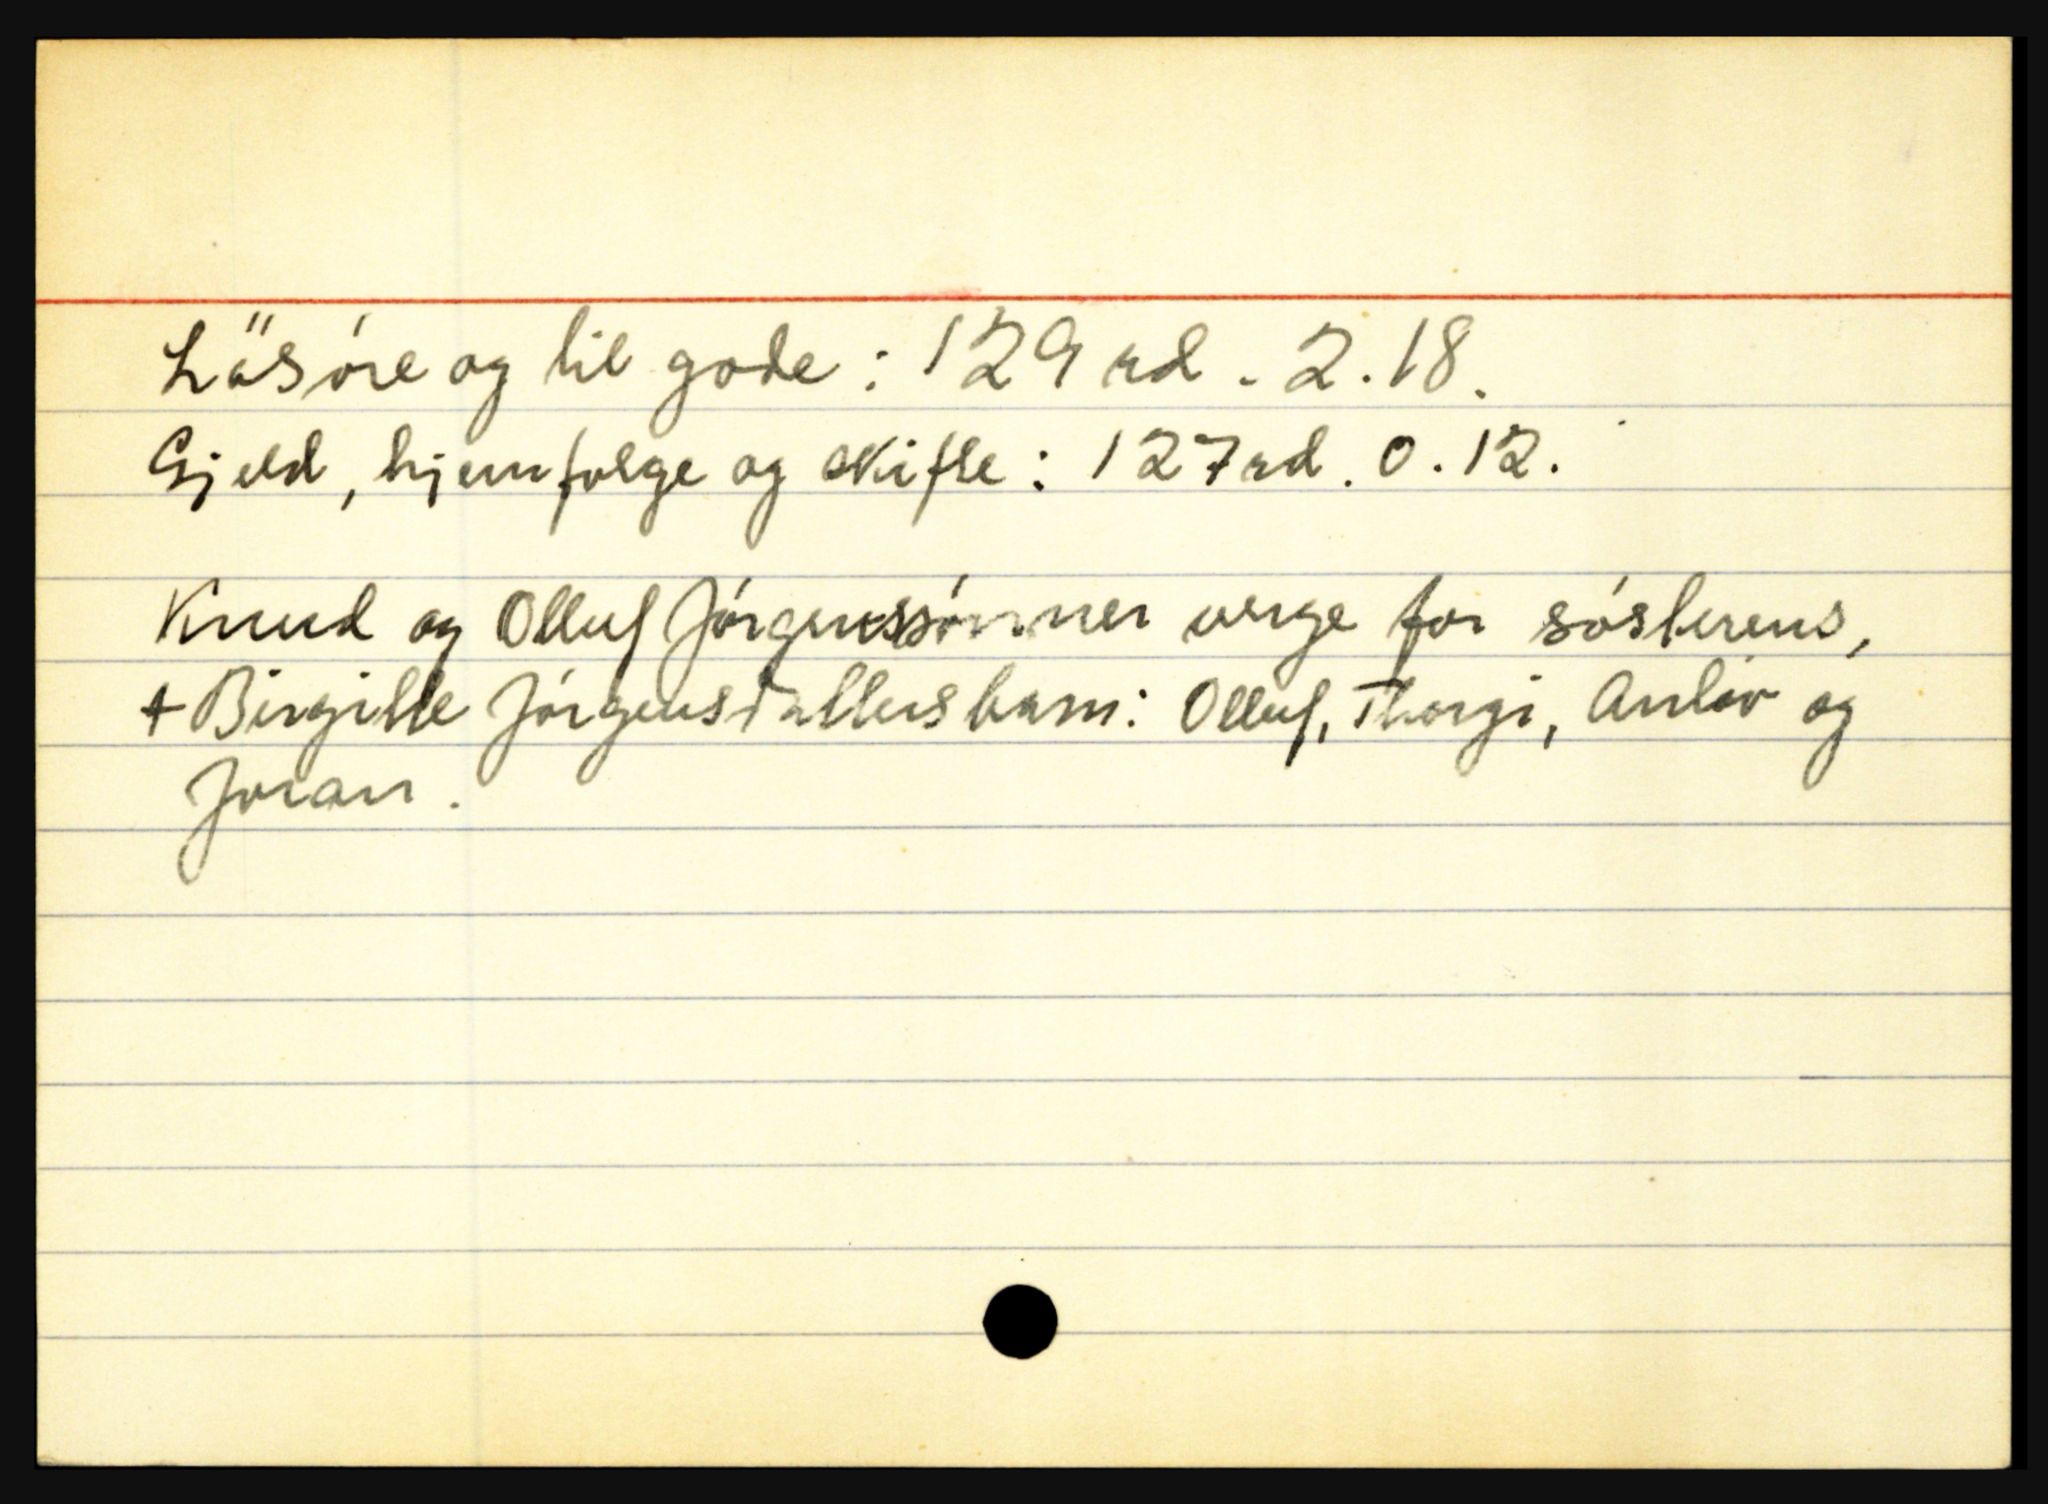 Läsóre og til gode: 129 rd. 2.18.
Gjeld, hjemfolge og skifte: 127 rd. 0.12.
Knud og Olluf Jórgenssónner verge for sósterens,
+ Birgitte Jórgensdatters barn: Olluf, Thorgi, Anlov og
Joran.